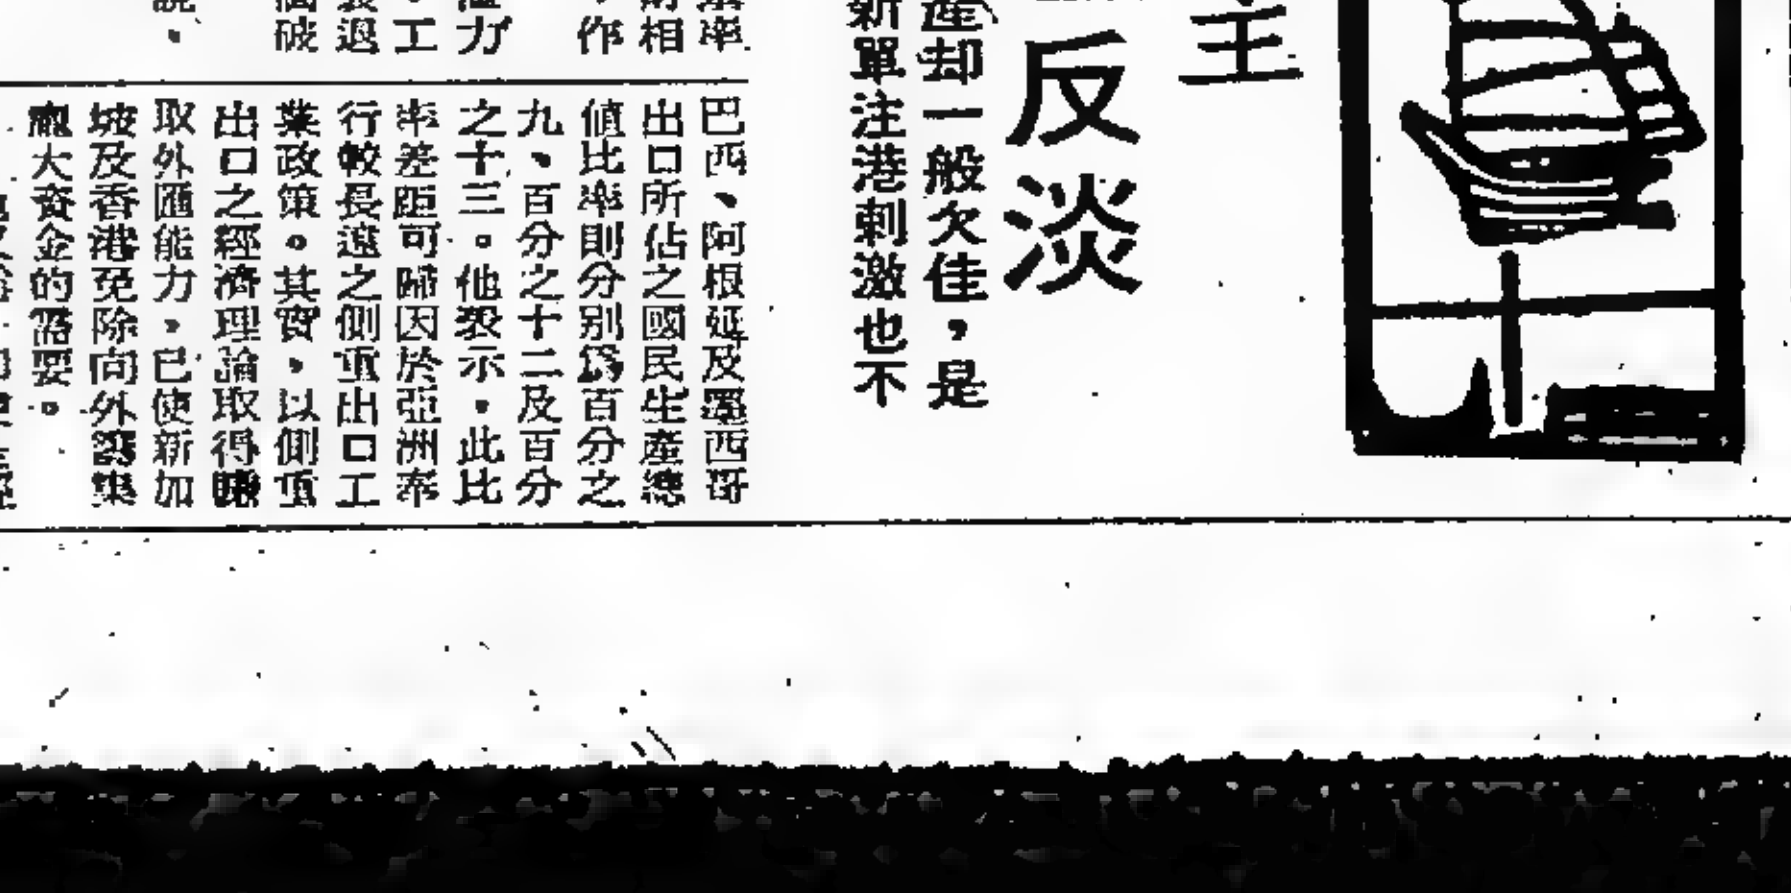 主
反淡
產却一般欠佳，是
新單注港刺激也不
率
財相
，作
力
。工
退
破
、
巴西、阿根廷及墨西哥
出口所佔之國民生產總
值比率則分別爲百分之
九、百分之十二及百分
之十三。他表示，此比
率差距可歸因於亞洲奉
行較長遠之側重出口工
業政策。其實，以側重
出口之經濟理論取得賺
取外匯能力，已使新加
坡及香港免除向外籌集
龐大資金的需要。